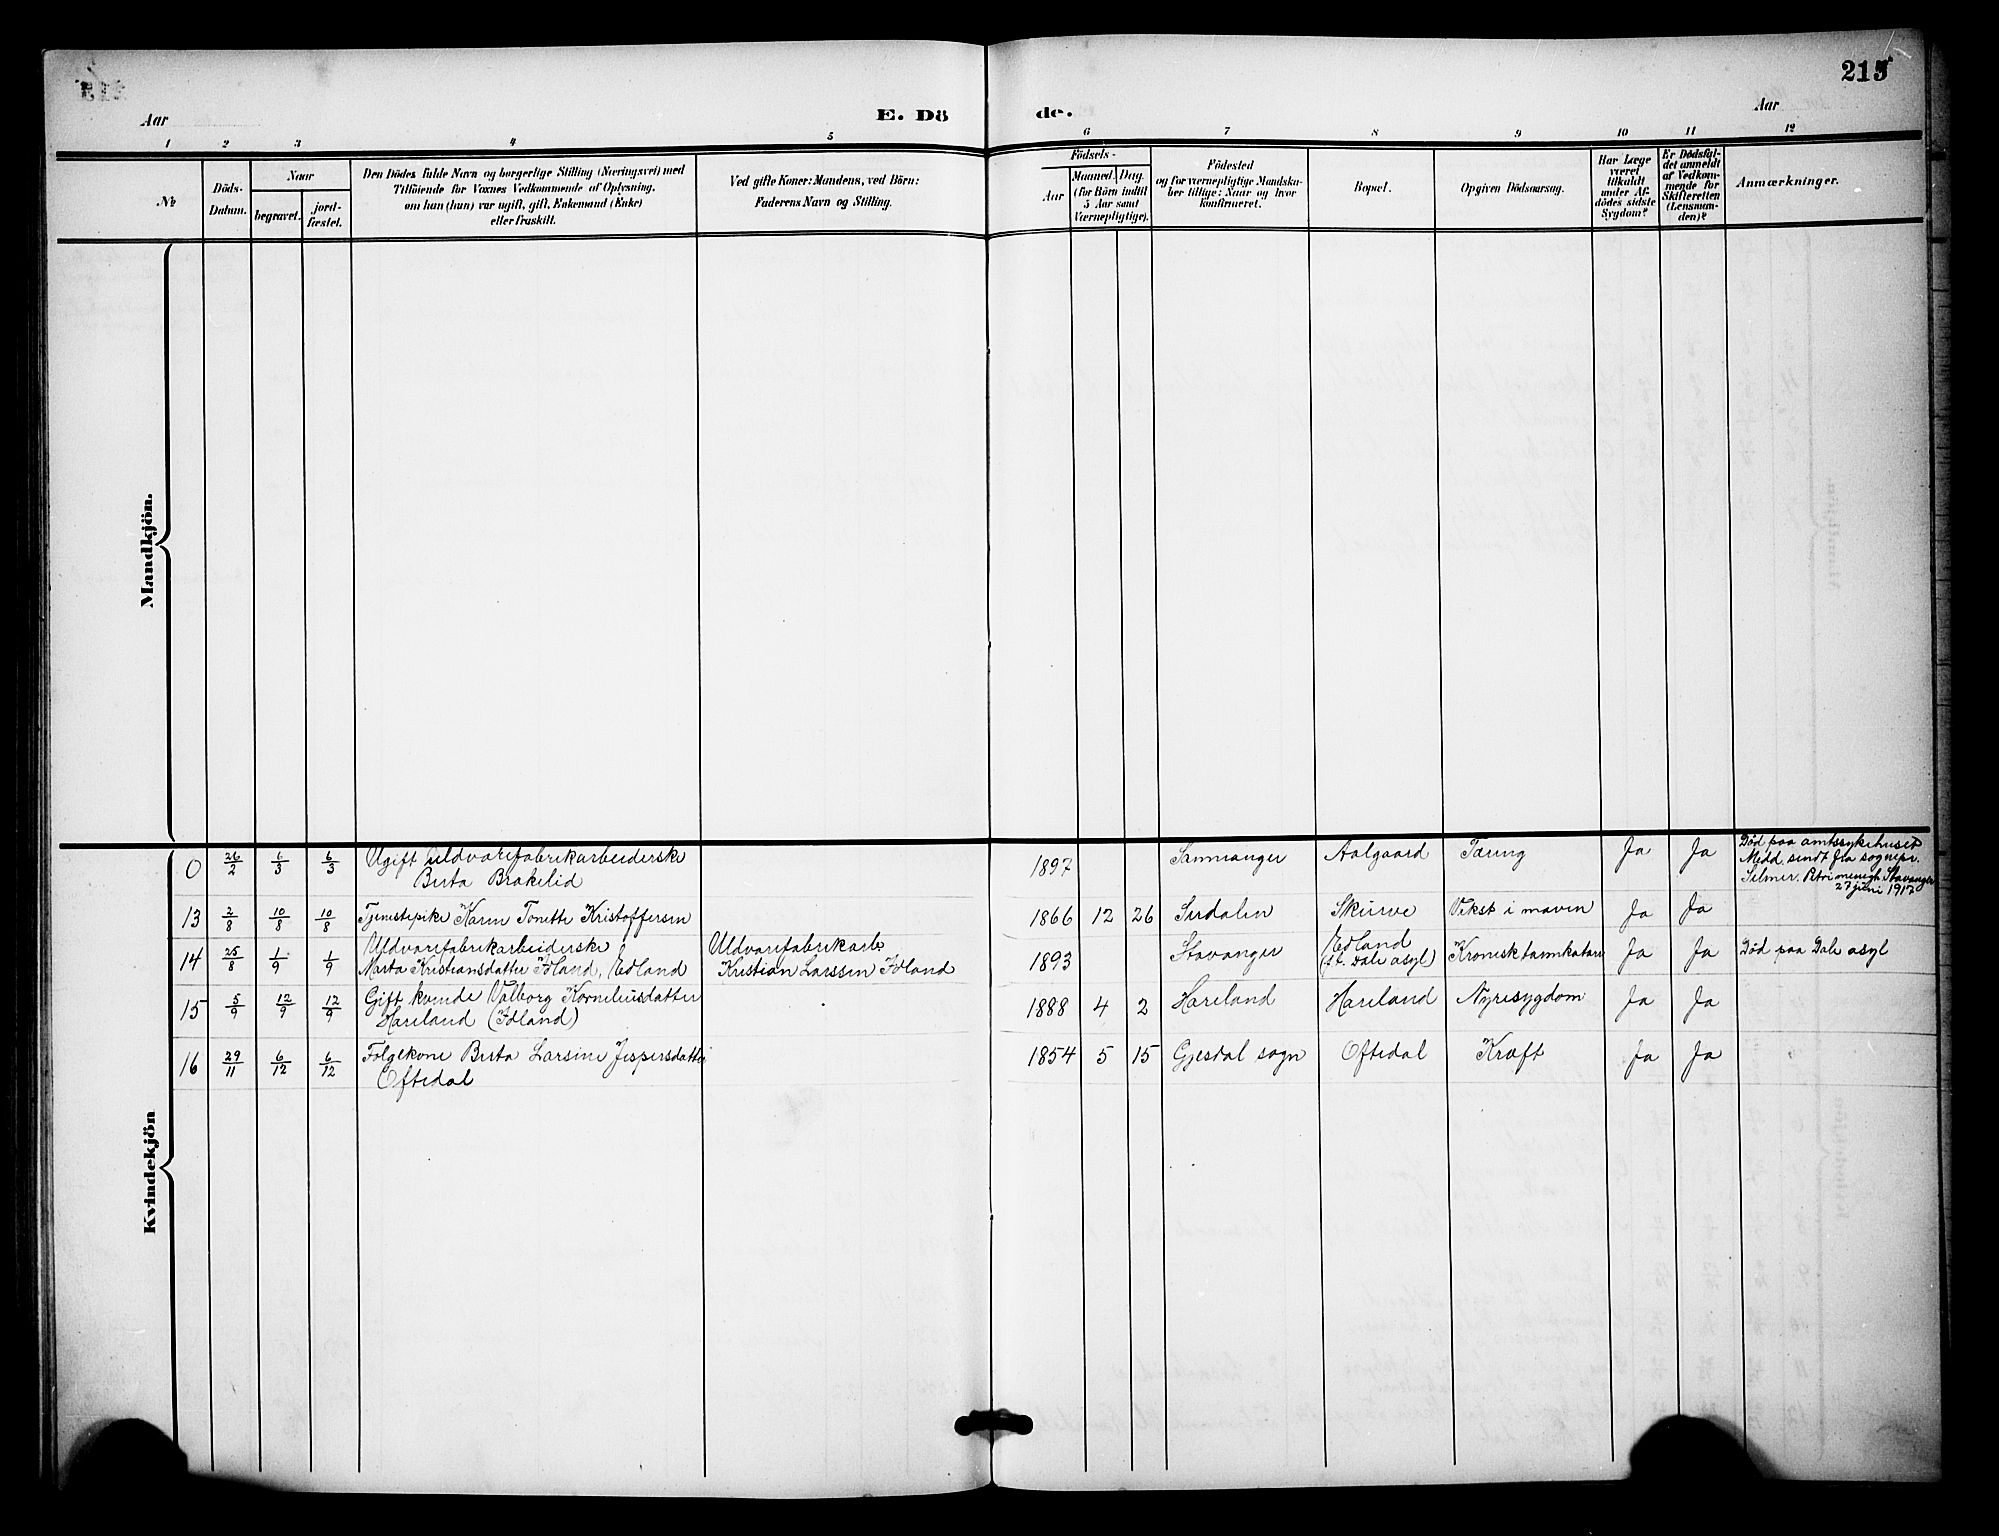 213
Aar
E. Dö
de.
Aar
1 2 3 4 5 6 7 8 9 10 11 12
№
Döds-
Datum.
Naar
begravet.
jord-
fæstet.
Den Dödes fulde Navn og borgerlige Stilling (Næringsvei) med
Tilföiende for Voxnes Vedkommende af Oplysning,
om han (hun) var ugift, gift, Enkemand (Enke)
eller fraskilt.
Ved gifte Koner: Mandens, ved Börn:
Faderens Navn og Stilling.
Födsels-
Aar
Maaned. Dag.
(for Börn indtil
5 Aar samt
Værnepligtige).
Födested
og for værnepligtige Mandska-
ber tillige: Naar og hvor
konfirmeret.
Bopæl.
Opgiven Dödsaarsag.
Har Læge
været
tilkaldt
under Af-
dödes sidste
Sygdom?
Er Dödsfal-
det anmeldt
af Vedkom-
mende for
Skifteretten
(Lensman-
den)?
Anmærkninger.
Mandkjön.
Kvindekjön
0 26/2 6/3 6/3 Ugift uldvarefabrikarbeiderske
Berta Brakelid
1897 Samnanger Aalgaard Tæring Ja Ja
Död paa amtssykehuset
Medd. sendt fra sognepr.
Selmer, Petri menigh. Stavanger
27 juni 1917
13 2/8 10/8 10/8 Tjenestepike Karen Tonette Kristoffersen 1866 12 26 Sirdalen Skurve Vekst i maven Ja Ja
14 25/8 1/9 1/9 Uldvarefabrikarbeiderske
Marta Kristiansdatter Idland, Edland
Uldvarefabrikarb.
Kristian Larssen Idland
1893 Stavanger Edland
(f.t. Dale asyl) Kronisk tarmkatarr Ja Ja Död paa Dale asyl
15 5/9 12/9 12/9 Gift kvinde Valborg Korneliusdatter
Hareland (Idland)
1888 4 2 Hareland Hareland Nyresygdom Ja Ja
16 29/11 6/12 6/12 Folgekone Berta Larsine Jespersdatter
Oftedal
1854 5 15 Gjesdal sogn Oftedal Kræft Ja Ja